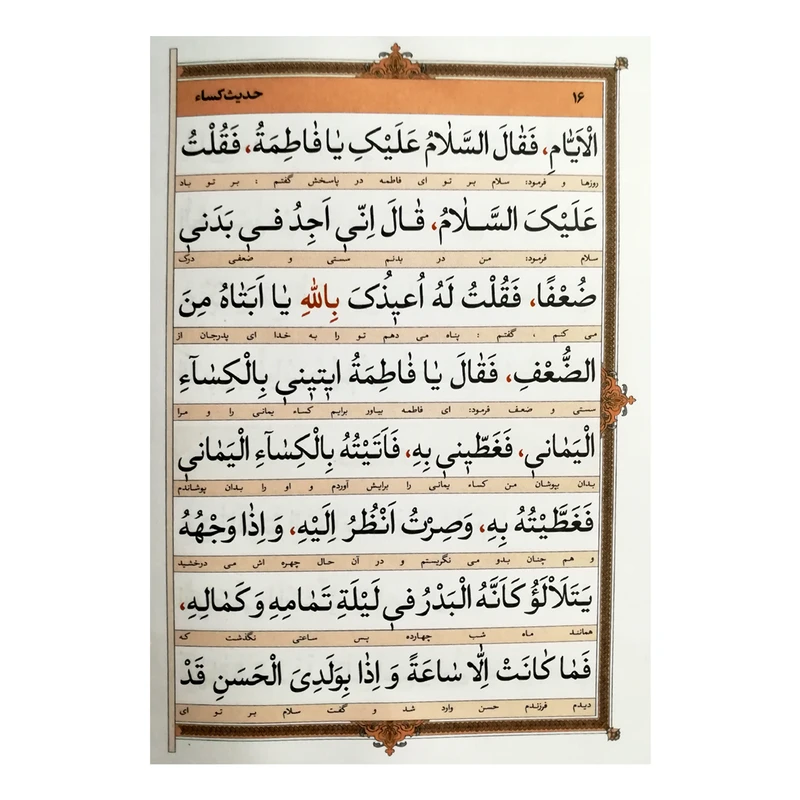 ۱۶ حدیث کساء
الْاَیّٰامِ، فَقٰالَ السَّلٰامُ عَلَیْکِ یٰا فٰاطِمَةُ، فَقُلْتُ
روزها و فرمود: سلام بر تو ای فاطمه در پاسخش گفتم : بر تو باد
عَلَیْکَ السَّـلٰامُ، قٰـالَ اِنّٖی اَجِدُ فـٖی بَدَنٖی
سلام فرمود: من در بدنم سستی و ضعفی درک
ضُعْفًا، فَقُلْتُ لَهُ اُعیٖذُکَ بِاللّٰهِ یٰا اَبَتٰاهُ مِنَ
می کنم ، گفتم : پناه می دهم تو را به خدا ای پدرجان از
الضُّعْفِ، فَقٰالَ یٰا فٰاطِمَةُ ایٖتیٖنٖی بِالْکِسٰاۤءِ
سستی و ضعف فرمود: ای فاطمه بیاور برایم کساء یمانی را و مرا
الْیَمٰانٖی، فَغَطّیٖنٖی بِهِ، فَاَتَیْتُهُ بِالْکِسٰاۤءِ الْیَمٰانٖی
بدان بپوشان من کساء یمانی را برایش آوردم و او را بدان پوشاندم
فَغَطَّیْتُهُ بِهِ، وَصِرْتُ اَنْظُرُ اِلَیْهِ، وَ اِذٰا وَجْهُهُ
و هم چنان بدو می نگریستم و در آن حال چهره اش می درخشید
یَتَلَاْلَؤُ کَاَنَّهُ الْبَدْرُ فٖی لَیْلَةِ تَمٰامِهِ وَ کَمٰالِهِ،
همانند ماه شب چهارده پس ساعتی نگذشت که
فَمٰا کٰانَتْ اِلّٰا سٰاعَةً وَ اِذٰا بِوَلَدِیَ الْحَسَنِ قَدْ
دیدم فرزندم حسن وارد شد و گفت سلام بر تو ای